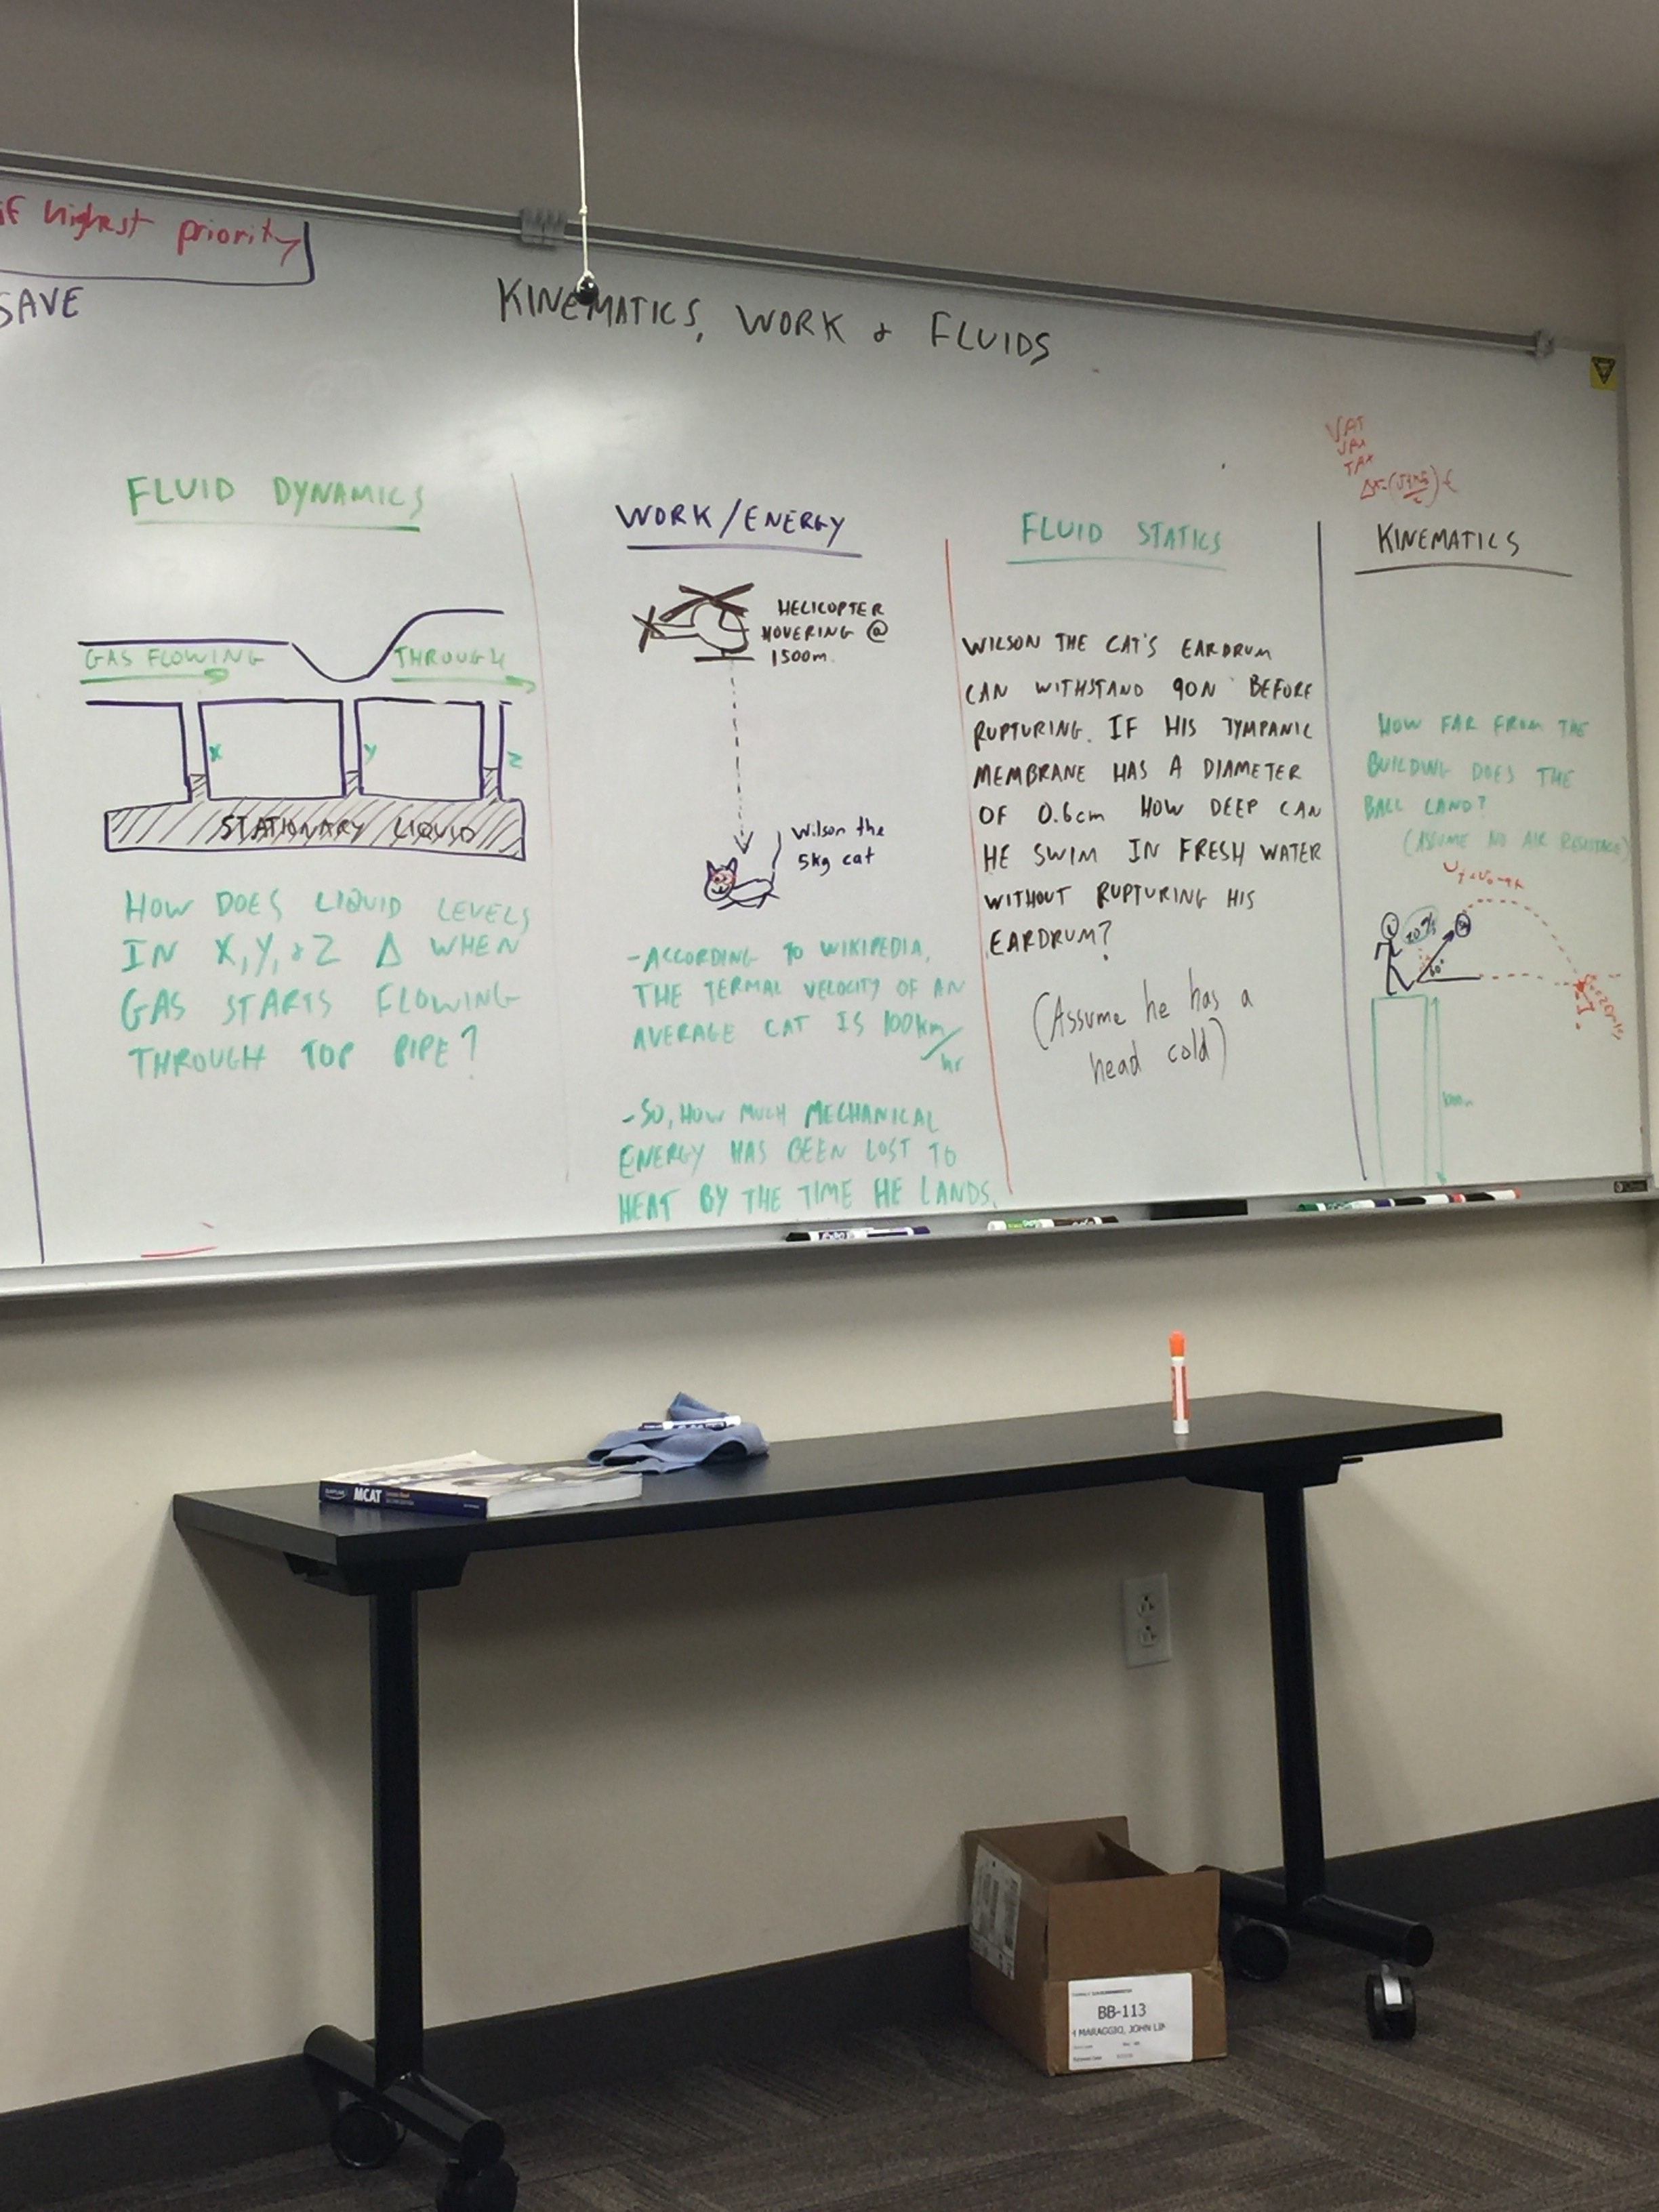 if highest priority
SAVE
KINEMATICS, WORK & FLUIDS
FLUID DYNAMICS
GAS FLOWING
THROUGH
X
Y
Z
STATIONARY LIQUID
HOW DOES LIQUID LEVELS
IN X, Y, & Z Δ WHEN
GAS STARTS FLOWING
THROUGH TOP PIPE?
WORK/ENERGY
HELICOPTER
HOVERING @
1500m
Wilson the
5kg cat
-ACCORDING TO WIKIPEDIA,
THE TERMAL VELOCITY OF AN
AVERAGE CAT IS 100km/hr
-SO, HOW MUCH MECHANICAL
ENERGY HAS BEEN LOST TO
HEAT BY THE TIME HE LANDS.
FLUID STATICS
WILSON THE CAT'S EARDRUM
CAN WITHSTAND 90N BEFORE
RUPTURING. IF HIS TYMPANIC
MEMBRANE HAS A DIAMETER
OF 0.6cm HOW DEEP CAN
HE SWIM IN FRESH WATER
WITHOUT RUPTURING HIS
EARDRUM?
(Assume he has a
head cold)
VAT
TAX
KINEMATICS
HOW FAR FROM THE
BUILDING DOES THE
BALL LAND?
(ASSUME NO AIR RESISTANCE)
60°
KAPLAN
MCAT
BB-113
MARAGGIO, JOHN